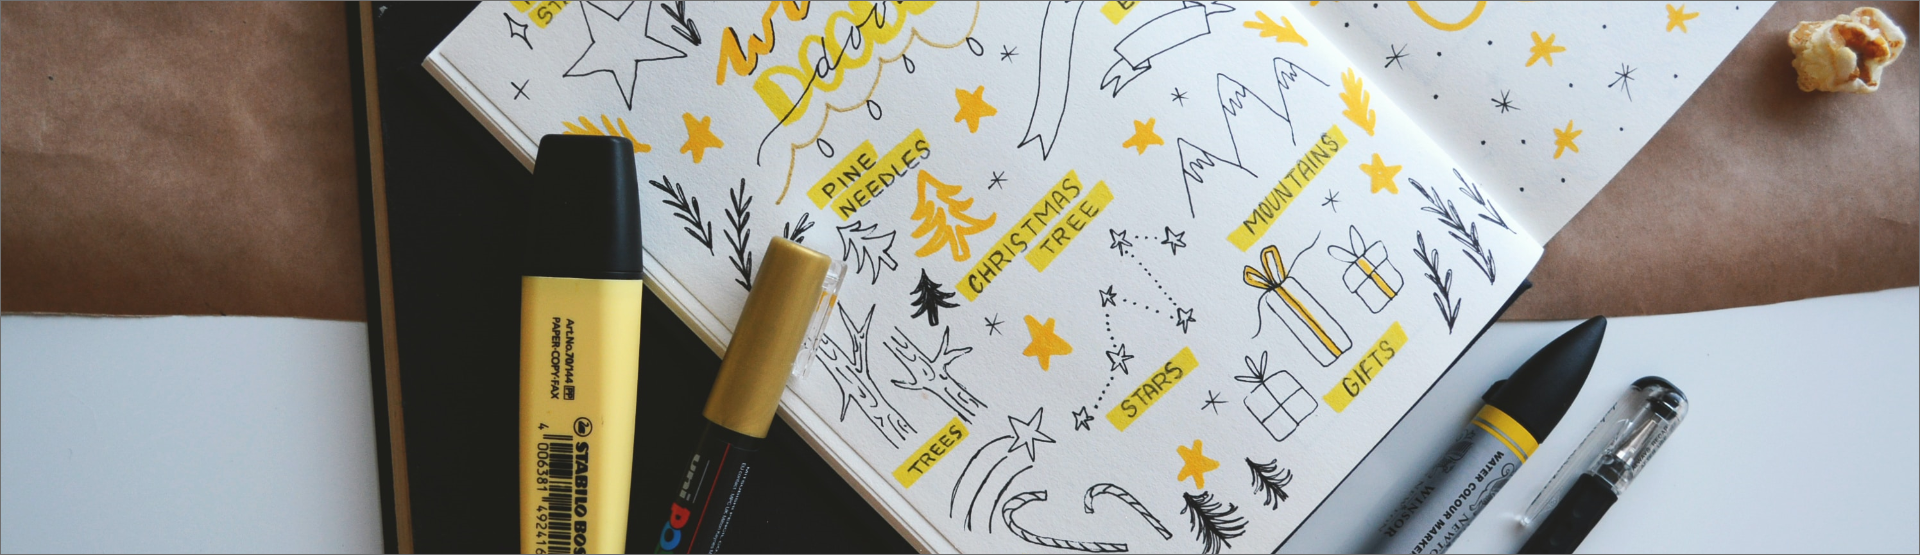 PINE
NEEDLES
CHRISTMAS
TREE
MOUNTAINS
STARS
GIFTS
TREES
Art.No.70/144
PAPER-COPY-FAX
STABILO BOS
4 006381 49241
uni
PO
WATER COLOUR MARKER
WINSOR
NEWTO